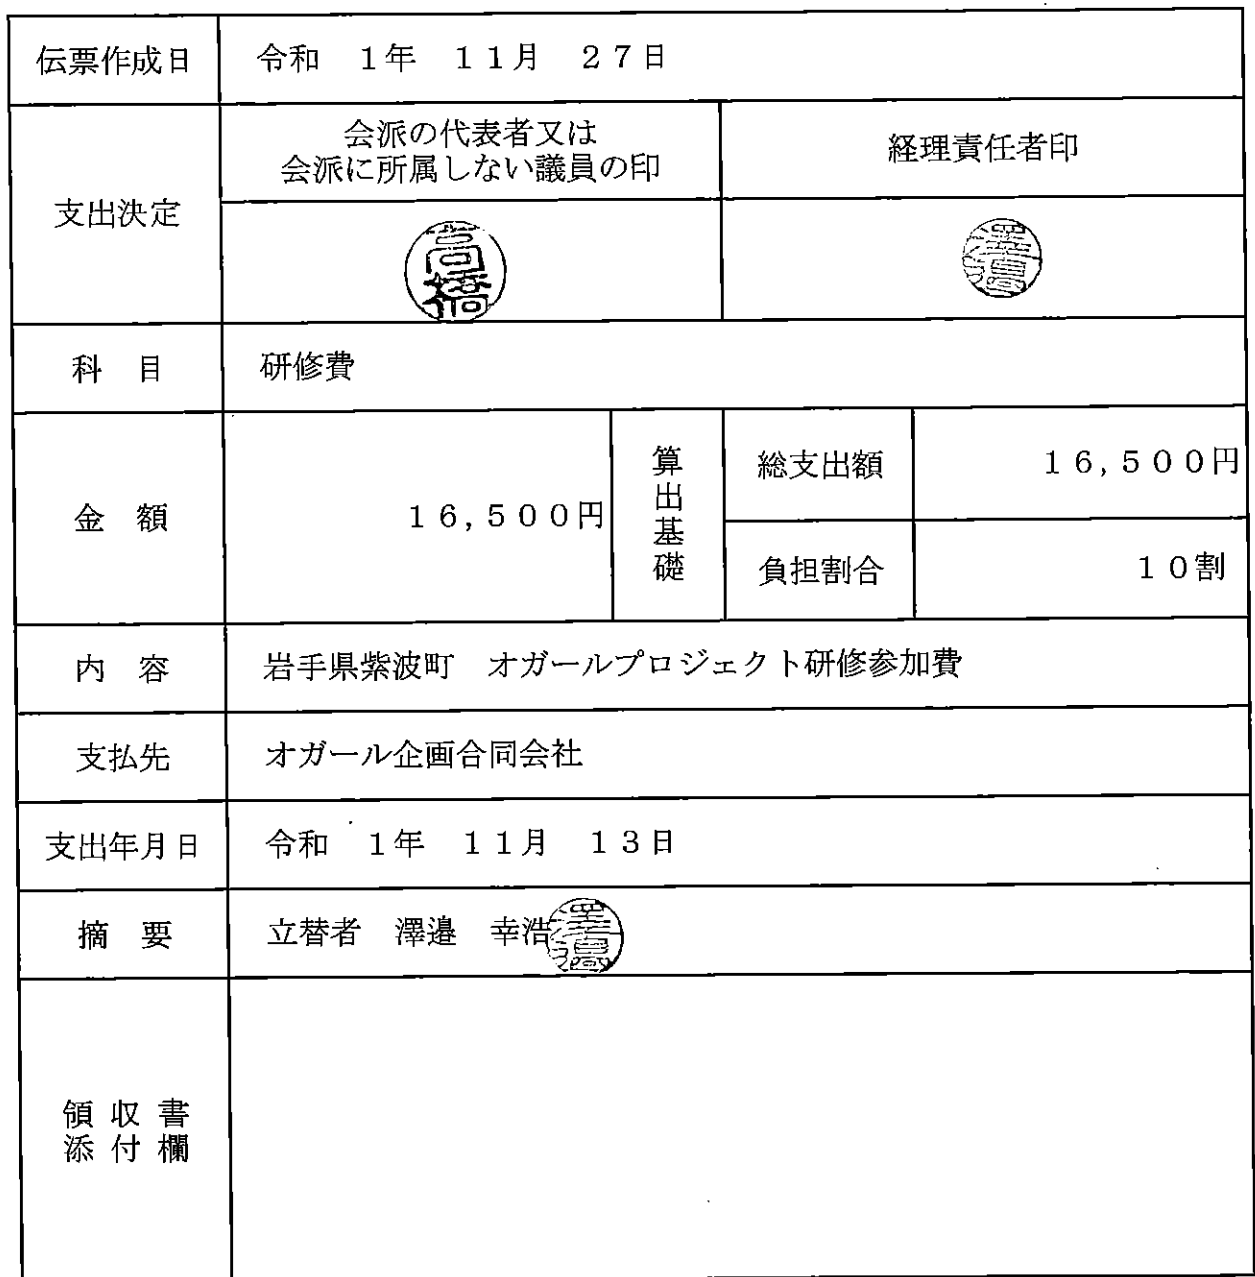 伝票作成日 令和 1年 11月 27日
支出決定
会派の代表者又は
会派に所属しない議員の印
経理責任者印
高橋
澤邉
科 目 研修費
金 額 16,500円
算出基礎
総支出額 16,500円
負担割合 10割
内 容 岩手県紫波町 オガールプロジェクト研修参加費
支払先 オガール企画合同会社
支出年月日 令和 1年 11月 13日
摘 要 立替者 澤邉 幸浩 澤邉
領収書
添付欄